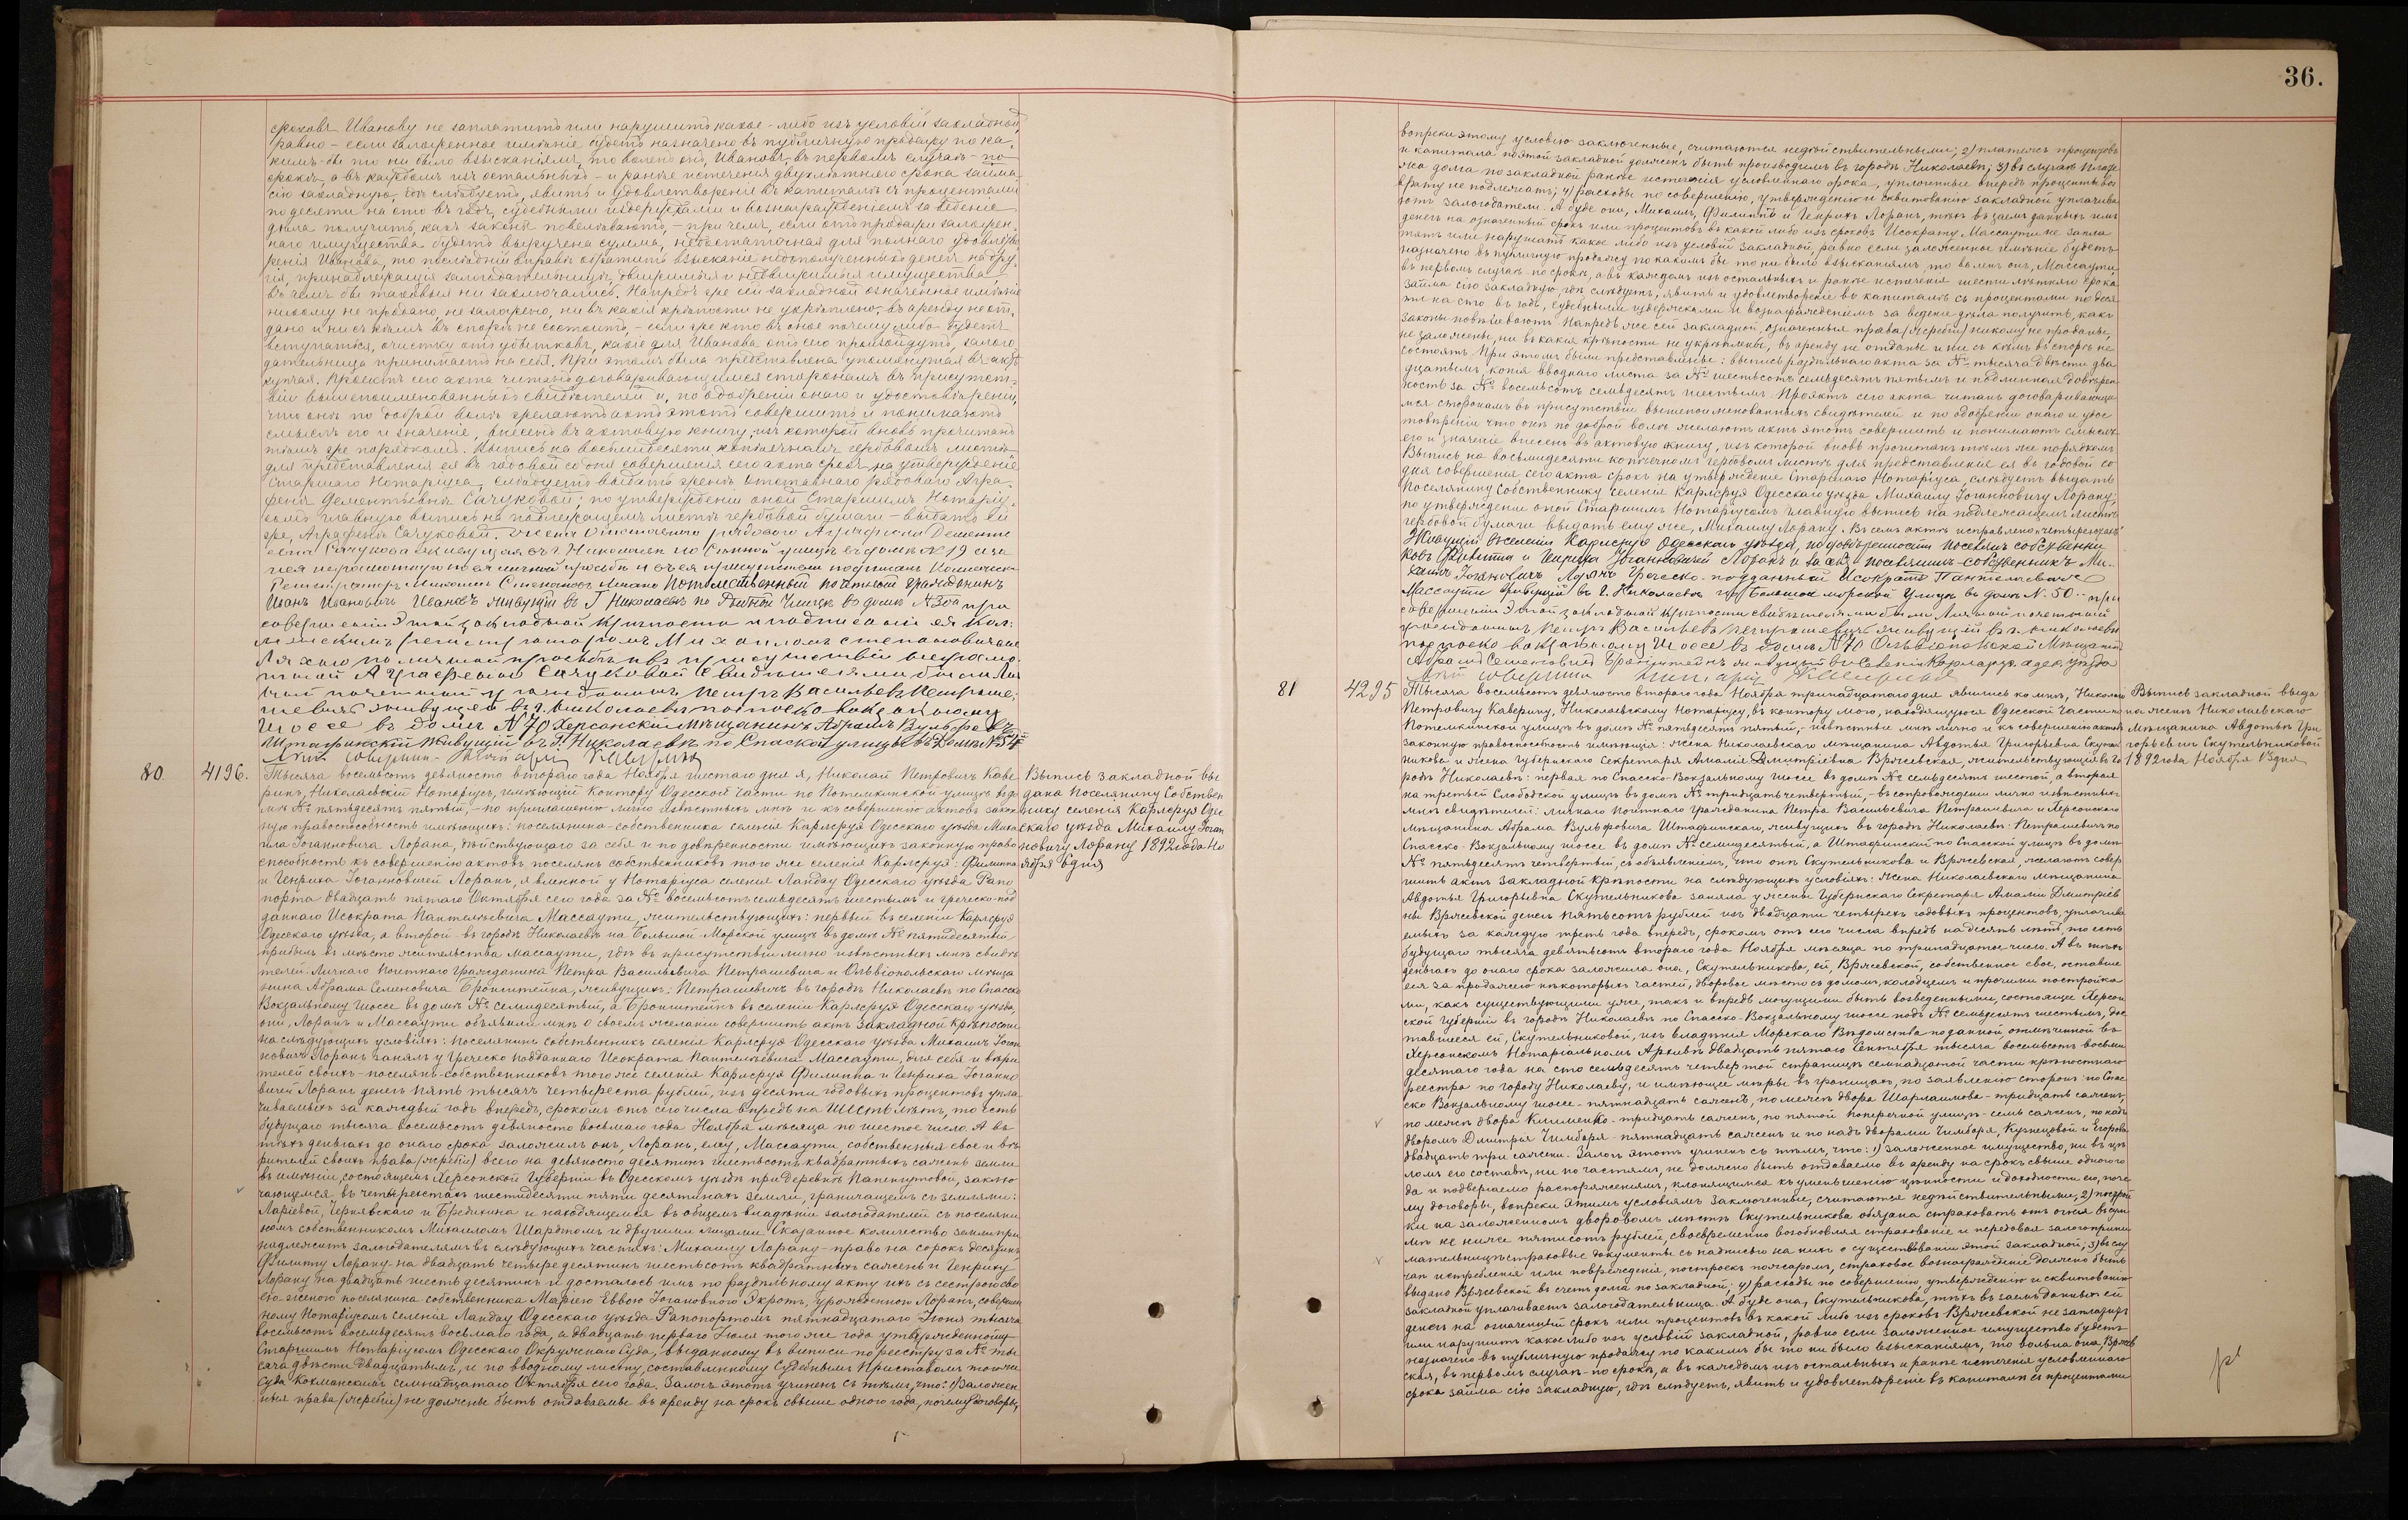 36.
срокова Иванову не заплатитъ или нарушитъ какое-либо изъ условій закладной,
равно - если заложенное имѣніе будетъ назначено въ публичную продажу по ка-
кимъ-бы то ни было взысканіямъ, то воленъ онъ, Ивановъ, въ первомъ случаѣ - по
срокѣ, а въ каждомъ изъ остальныхъ - и ранѣе истеченія двухлѣтняго срока займа
сію закладную, гдѣ слѣдуетъ, явить и удовлетвореніе въ капиталѣ съ процентами
по десяти на сто въ годъ, судебными издержками и вознагражденіемъ за веденіе
дѣла получить, какъ законы повелѣваютъ, - при чемъ, если отъ продажи заложен-
наго имущества будетъ выручена сумма, недостаточная для полнаго удовлетво
ренія Иванова, то послѣдній вправѣ обратить взысканіе недополученныхъ денегъ на дру-
гія, принадлежащія залогодательницѣ, движимыя и недвижимыя имущества,
въ чемъ бы таковыя ни заключались. Напредъ же сей закладной означенное имѣніе
никому не продано, не заложено, ни въ какія крѣпости не укрѣплено, въ аренду не от-
дано и ни съ кѣмъ въ спорѣ не состоитъ, - если же кто въ оное почему либо будетъ
вступаться, очистку отъ убытковъ, какіе для Иванова отъ сего произойдутъ, залого
дательница принимаетъ на себя. При этомъ была представлена упомянутая въ актѣ
купчая. Проектъ сего акта читанъ договаривающимся сторонамъ въ присутст-
віи вышепоименованныхъ свидѣтелей и, по одобреніи онаго и удостовѣреніи,
что онѣ по доброй волѣ желаютъ актъ этотъ совершить и понимаютъ
смыслъ его и значеніе, внесенъ въ актовую книгу, изъ которой вновь прочитанъ
тѣмъ же порядкомъ. Выпись на восьмидесяти копѣечномъ гербовомъ листѣ
для представленія ея въ годовой со дня совершенія сего акта срокъ на утвержденіе
Старшаго Нотаріуса, слѣдуетъ выдать женѣ отставнаго рядоваго Агра-
фенѣ Дементьевнѣ Сачуковой; по утвержденіи оной Старшимъ Нотаріу-
сомъ главную выпись на подлежащемъ листѣ гербовой бумаги - выдать ей
же, Аграфенѣ Сачуковой. Жена отставнаго рядоваго Аграфена Дементье
евна Сачукова живущая въ г. Николаевѣ по Сѣнной улицѣ въ домѣ № 19 а за
нея неграмотную по ея личной просьбѣ и въ ея присутствіи подписалъ Коллежскій
Регистраторъ Михаилъ Степановъ Ляхно Потомственный почетный гражданинъ
Иванъ Ивановичъ Ивановъ живущій въ Г Николаевѣ по Рыбной Улицѣ въ домѣ № 30й при
совершеніи этой закладной крѣпости и подписаніи ея Кол-
лежскимъ регистраторомъ Михаиломъ Степановичемъ
Ляхно по личной просьбѣ и въ присутствіи неграмо-
тной Аграфены Сачуковой свидѣтелями были Лич
ный почетный гражданинъ Петръ Васильевъ Петраше-
вичъ живущій въ г. Николаевѣ по Спаско вокзальному
шоссе въ домѣ № 70 Херсонскій мѣщанинъ Абрамъ Вульфовъ
Штафинскій живущій въ г. Николаевѣ по Спаской улицѣ въ Домѣ № 54й
Актъ совершилъ Нотаріусъ Каверинъ
80 4196. Тысяча восемьсотъ девяносто втораго года Ноября шестаго дня я, Николай Петровичъ Каве
ринъ, Николаевскій Нотаріусъ, имѣющій Контору Одесской части по Потемкинской улицѣ въ до
мѣ № пятьдесятъ пятый, - по приглашенію лично извѣстныхъ мнѣ и къ совершенію актовъ закон
ную правоспособность имѣющихъ: поселянина-собственника селенія Карлсруэ Одесскаго уѣзда Миха
ила Іоганновича Лорана, дѣйствующаго за себя и по довѣренности имѣющихъ законную право
способность къ совершенію актовъ поселянъ собственниковъ того же селенія Карлсруэ: Филиппа
и Генриха Іоганновичей Лоранъ, явленной у Нотаріуса селенія Ландау Одесскаго уѣзда Рапо
порта двадцать пятаго Октября сего года за № восемьсотъ семьдесятъ шестымъ и греческо-под
даннаго Исократа Пантелѣевича Массаути, жительствующихъ: первый въ селеніи Карлсруэ
Одесскаго уѣзда, а второй - въ городѣ Николаевѣ на Большой Морской улицѣ въ домѣ № пятидесятый
прибылъ въ мѣсто жительства Массаути, гдѣ въ присутствіи лично извѣстныхъ мнѣ свидѣ
телей: Личнаго Почетнаго Гражданина Петра Васильевича Петрашевича и Ольвіопольскаго мѣща
нина Абрама Семеновича Бронштейна, живущихъ: Петрашевичъ въ городѣ Николаевѣ по Спасско
Вокзальному шоссе въ домѣ № семидесятый, а Бронштейнъ въ селеніи Карлсруэ Одесскаго уѣзда,
они, Лоранъ и Массаути объявили мнѣ о своемъ желаніи совершить актъ закладной крѣпости
на слѣдующихъ условіяхъ: поселянинъ собственникъ селенія Карлсруэ Одесскаго уѣзда Михаилъ Іоган
новичъ Лоранъ занялъ у Греческо подданнаго Исократа Пантелѣевича Массаути, для себя и вѣри
телей своихъ - поселянъ-собственниковъ того же селенія Карлсруэ Филиппа и Генриха Іоганно
вичей Лоранъ денегъ пять тысячъ четыреста рублей, изъ десяти годовыхъ процентовъ упла
чиваемыхъ за каждый годъ впередъ, срокомъ отъ сего числа впредь на шесть лѣтъ, то есть
будущаго тысяча восемьсотъ девяносто восьмаго года Ноября мѣсяца по шестое число. А въ
тѣхъ деньгахъ до онаго срока заложилъ онъ, Лоранъ, ему, Массаути, собственныя свое и вѣ
рителей своихъ права (жребіи) всего на девяносто десятинъ шестьсотъ квадратныхъ саженъ земли
въ имѣніи, состоящемъ Херсонской Губерніи въ Одесскомъ уѣздѣ при деревнѣ Папенгутовой, заклю
чающемся въ четырехстахъ шестидесяти пяти десятинахъ земли, граничащемъ съ землями:
Ларіевой, Чернявскаго и Бредихина и находящемся въ общемъ владѣніи залогодателей съ поселяни
номъ собственникомъ Михаиломъ Шардтомъ и другими лицами. Сказанное количество земли при
надлежитъ залогодателямъ въ слѣдующихъ частяхъ: Михаилу Лорану - право на сорокъ десятинъ
Филиппу Лорану на двадцать четыре десятинъ шестьсотъ квадратныхъ саженъ и Генриху
Лорану на двадцать шесть десятинъ и досталось имъ по раздѣльному акту ихъ съ сестрою сво
ею женою поселянина собственника Маріею Еввою Іогановною Экротъ, урожденною Лоранъ, совершен
ному Нотаріусомъ селенія Ландау Одесскаго уѣзда Рапопортомъ пятнадцатаго Іюня тысяча
восемьсотъ восемьдесятъ восьмаго года, а двадцать перваго Іюля того же года утвержденному
Старшимъ Нотаріусомъ Одесскаго Окружнаго Суда, выданному въ выписи по реестру за № ты
сяча двѣсти двадцатымъ, и по вводному листу, составленному Судебнымъ Приставомъ того же
Суда Кохманскимъ семнадцатаго Октября сего года. Залогъ этотъ учиненъ съ тѣмъ, что: 1) Заложен
ныя права (жребіи) не должны быть отдаваемы въ аренду на срокъ свыше одного года, почему договоры,
Выпись закладной вы
дана поселянину Собствен
нику селенія Карлсруэ Оде
скаго уѣзда Михаилу Іоган
новичу Лорану 1892 года Но
ября 6 дня
вопреки этому условію заключенные, считаются недѣйствительными; 2) платежъ процентовъ
и капитала по этой закладной долженъ быть производимъ въ городѣ Николаевѣ; 3) въ случаѣ плате
жа долга по закладной ранѣе истеченія условленнаго срока, уплоченные впередъ проценты воз
врату не подлежатъ; 4) расходы по совершенію, утвержденію и сквитованію закладной уплачива
ютъ залогодатели. А буде они, Михаилъ, Филиппъ и Генрихъ Лоранъ, тѣхъ въ заемъ данныхъ имъ
денегъ на означенный срокъ или процентовъ въ какой либо изъ сроковъ Исократу Массаути не запла
тятъ или нарушатъ какое либо изъ условій закладной, равно если заложенное имѣніе будетъ
назначено въ публичную продажу по какимъ бы то ни было взысканіямъ, то воленъ онъ, Массаути,
въ первомъ случаѣ - по срокѣ, а въ каждомъ изъ остальныхъ и ранѣе истеченія шести лѣтняго срока
займа сію закладную, гдѣ слѣдуетъ, явить и удовлетвореніе въ капиталѣ съ процентами по деся
ти на сто въ годъ, судебными издержками и вознагражденіемъ за веденіе дѣла получить, какъ
законы повелѣваютъ. Напредъ же сей закладной, означенныя права (жребіи) никому не проданы,
не заложены, ни въ какія крѣпости не укрѣплены, въ аренду не отданы и ни съ кѣмъ въ спорѣ не
состоятъ. При этомъ были представлены: выпись раздѣльнаго акта за № тысяча двѣсти два
дцатымъ, копія вводнаго листа за № шестьсотъ семьдесятъ пятымъ и подлинная довѣрен
ность за № восемьсотъ семьдесятъ шестымъ. Проэктъ сего акта читанъ договариваю
мся сторонамъ въ присутствіи вышепоименованныхъ свидѣтелей и по одобреніи онаго и удос
товѣреніи что онѣ по доброй волѣ желаютъ актъ этотъ совершить и понимаютъ смыслъ
его и значеніе внесенъ въ актовую книгу, изъ которой вновь прочитанъ тѣмъ же порядкомъ
Выпись на восьмидесяти копѣечномъ гербовомъ листѣ для представленія ея въ годовой со
дня совершенія сего акта срокъ на утвержденіе Старшаго Нотаріуса, слѣдуетъ выдать
Поселянину Собственнику селенія Карлсруэ Одесскаго уѣзда Михаилу Іоганновичу Лорану,
по утвержденіи оной Старшимъ Нотаріусомъ главную выпись на подлежащемъ листѣ
гербовой бумаги выдать ему же, Михаилу Лорану. Въ семъ актѣ исправлено "четырехстахъ"
Живущій въ селеніи Карлсруэ Одесскаго уѣзда, по довѣренности поселянъ собственни
ковъ Филиппа и Генриха Іоганновичей Лоранъ и за себя поселянинъ-собственникъ Ми-
хаилъ Іогановичъ Лоранъ Греческо-подданный Исократъ Пантелѣевичъ
Массаути живущій въ г. Николаевѣ по Большой морской улицѣ въ домѣ № 50 при
совершеніи этой закладной крѣпости свидѣтелями были Личный почетный
гражданинъ Петръ Васильевъ Петрашевичъ живущій въ г. Николаевѣ
по Спаско вокзальному шоссе въ домѣ № 70 Ольвіопольской Мѣщанинъ
Абрамъ Семеновичъ Бронштейнъ живущій въ Селеніи Карлсруэ Одес. уѣзда
Актъ совершилъ Нотаріусъ Каверинъ
81 4295 Тысяча восемьсотъ девяносто втораго года Ноября тринадцатаго дня явились ко мнѣ, Николаю
Петровичу Каверину, Николаевскому Нотаріусу, въ контору мою, находящуюся Одесской части по
Потемкинской улицѣ въ домѣ № пятьдесятъ пятый, - извѣстныя мнѣ лично и къ совершенію актовъ
законную правоспособность имѣющія: жена Николаевскаго мѣщанина Авдотья Григорьевна Скутель
никова и жена Губернскаго Секретаря Амалія Дмитріевна Вржевская, жительствующія въ го
родѣ Николаевѣ: первая по Спасско-Вокзальному шоссе въ домѣ № семьдесятъ шестой, а вторая
на третьей Слободской улицѣ въ домѣ № тридцать четвертый, - въ сопровожденіи лично извѣстныхъ
мнѣ свидѣтелей: личнаго Почетнаго Гражданина Петра Васильевича Петрашевича и Херсонскаго
мѣщанина Абрама Вульфовича Штафинскаго, живущихъ въ городѣ Николаевѣ: Петрашевичъ по
Спасско-Вокзальному шоссе въ домѣ № семидесятый, а Штафинскій по Спасской улицѣ въ домѣ
№ пятьдесятъ четвертый, съ объявленіемъ, что онѣ Скутельникова и Вржевская, желаютъ совер
шить актъ закладной крѣпости на слѣдующихъ условіяхъ: жена Николаевскаго мѣщанина
Авдотья Григорьевна Скутельникова заняла у жены Губернскаго Секретаря Амаліи Дмитріев
ны Вржевской денегъ пятьсотъ рублей изъ двадцати четырехъ годовыхъ процентовъ, уплачива
емыхъ за каждую треть года впередъ, срокомъ отъ сего числа впредь на десять лѣтъ, то есть
будущаго тысяча девятьсотъ втораго года Ноября мѣсяца по тринадцатое число. А въ тѣхъ
деньгахъ до онаго срока заложила она, Скутельникова, ей, Вржевской, собственное свое, оставше
еся за продажею нѣкоторыхъ частей, дворовое мѣсто съ домомъ, колодцемъ и прочими постройка
ми, какъ существующими уже, такъ и впредь могущими быть возведенными, состоящее Херсон
ской Губерніи въ городѣ Николаевѣ по Спасско-Вокзальному шоссе подъ № семьдесятъ шестымъ, дос
тавшееся ей, Скутельниковой, изъ владѣнія Морскаго Вѣдомства по данной, отмѣченной въ
Херсонскомъ Нотаріальномъ Архивѣ двадцать пятаго Сентября тысяча восемьсотъ восьми
десятаго года на сто семьдесятъ четвертой страницѣ семнадцатой части крѣпостнаго
реестра по городу Николаеву, и имѣющее мѣры въ границахъ, по заявленію сторонъ: по Спас
ско Вокзальному шоссе - пятнадцать саженъ, по межѣ двора Шарлаимова - тридцать саженъ,
по межѣ двора Клименко - тридцать саженъ, по пятой Поперечной улицѣ - семь саженъ, по надъ
дворомъ Дмитрія Чимбаря - пятнадцать саженъ и по надъ дворами Чимбаря, Кузнецовой и Егорова
двадцать три сажени. Залогъ этотъ учиненъ съ тѣмъ, что: 1) заложенное имущество, ни въ цѣ
ломъ его составѣ, ни по частямъ, не должно быть отдаваемо въ аренду на срокъ свыше одного го
да и подвергаемо распоряженіямъ, клонящимся къ уменьшенію цѣнности и доходности его, поче
му договоры, вопреки этимъ условіямъ заключенные, считаются недѣйствительными; 2) построй
ки на заложенномъ дворовомъ мѣстѣ Скутельникова обязана страховать отъ огня въ сум
мѣ не ниже пятисотъ рублей, своевременно возобновляя страхованіе и передавая залогоприни
мательницѣ страховые документы съ надписью на нихъ о существованіи этой закладной; 3) въ слу
чаѣ истребленія или поврежденія, построекъ пожаромъ, страховое вознагражденіе должно быть
выдано Вржевской въ счетъ долга по закладной; 4) расходы по совершенію, утвержденію и сквитованію
закладной уплачиваетъ залогодательница. А буде она, Скутельникова, тѣхъ въ заемъ данныхъ ей
денегъ на означенный срокъ или процентовъ въ какой либо изъ сроковъ Вржевской не заплатитъ
или нарушитъ какое либо изъ условій закладной, равно если заложенное имущество будетъ
назначено въ публичную продажу по какимъ бы то ни было взысканіямъ, то вольна она, Вржев
ская, въ первомъ случаѣ - по срокѣ, а въ каждомъ изъ остальныхъ и ранѣе истеченія условленнаго
срока займа сію закладную, гдѣ слѣдуетъ, явить и удовлетвореніе въ капиталѣ съ процентами
Выпись закладной выда
на женѣ Николаевскаго
Мѣщанина Авдотьѣ Гри
горьевнѣ Скутельниковой
1892 года Ноября 13 дня